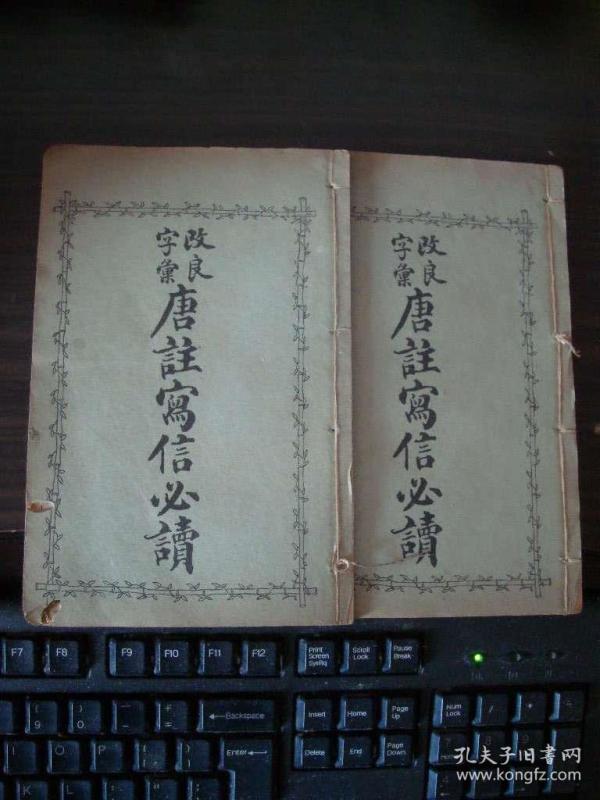 改良
字彙
唐註寫信必讀
改良
字彙
唐註寫信必讀
F7 F8 F9 F10 F11 F12 Print Screen SysRq Scroll Lock Pause Break
Backspace Insert Home Page Up Num Lock
Enter Delete End Page Down
孔夫子旧书网
www.kongfz.com